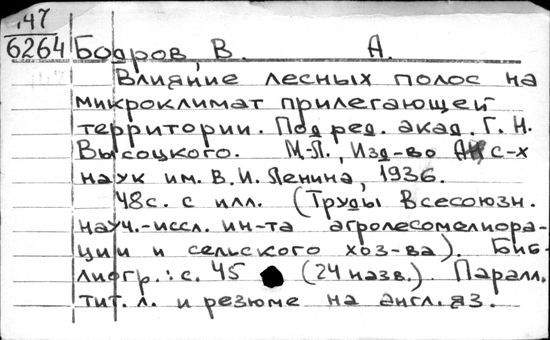 .47
6264
Бодров, В. А.
Влияние лесных полос на
микроклимат прилегающей
территории. Под ред. акад. Г. Н.
Высоцкого. М.-Л., Изд-во с-х
наук им. В. И. Ленина, 1936.
48с. с илл. (Труды Всесоюзн.
науч.-иссл. ин-та агролесомелиора-
ции и сельского хоз-ва). Биб-
лиогр.: с. 45 (24 назв.). Паралл.
тит. л. и резюме на англ. яз.